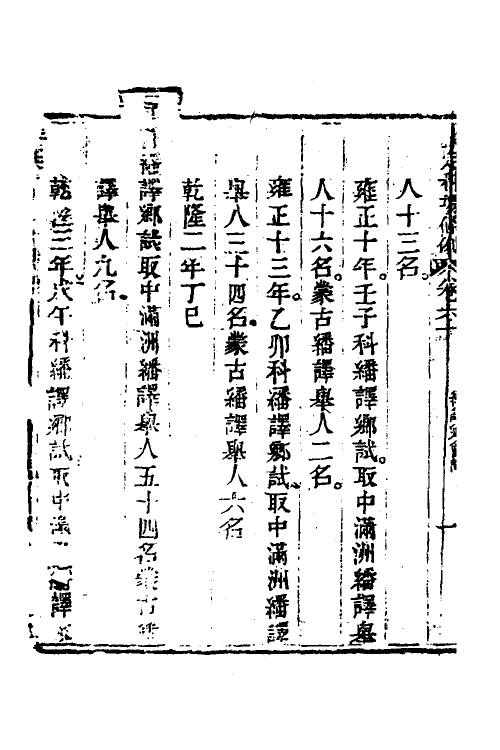 人十三名。
雍正十年。壬子科繙譯鄉試。取中滿洲繙譯舉
人十六名。蒙古繙譯舉人二名。
雍正十三年。乙卯科繙譯鄉試、取中滿洲繙譯
舉八三十四名。蒙古繙譯舉人六名
乾隆二年丁巳
繙譯鄉試取中滿洲繙譯舉人五十四名蒙古繙
譯舉人九名。
乾隆三年戊午科繙譯鄉試取中滿